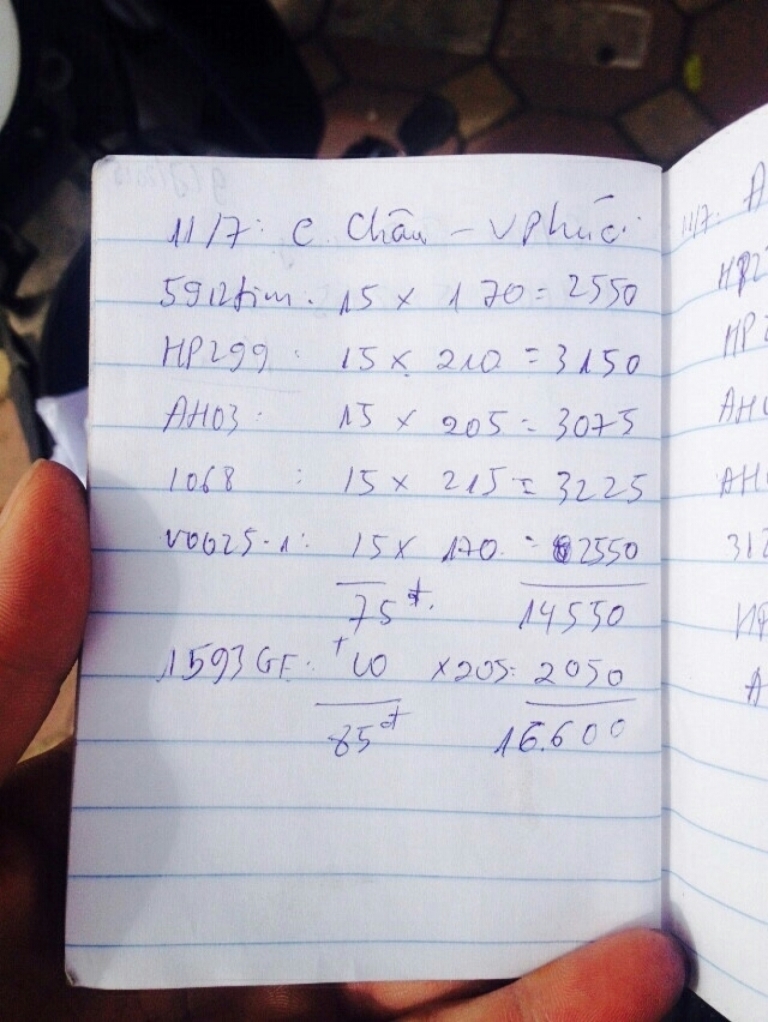 11/7: C Châu - VPhúc
5912tim. 15 x 170 = 2550
HP299 : 15 x 210 = 3150
AH03 : 15 x 205 = 3075
1068 : 15 x 215 = 3225
V0625-1: 15 x 170 = 2550
75đ. 14550
1593GF. + 10 x205= 2050
85đ 16.600
11/7: A
HP2
HP2
AH0
AH
312
HP
A